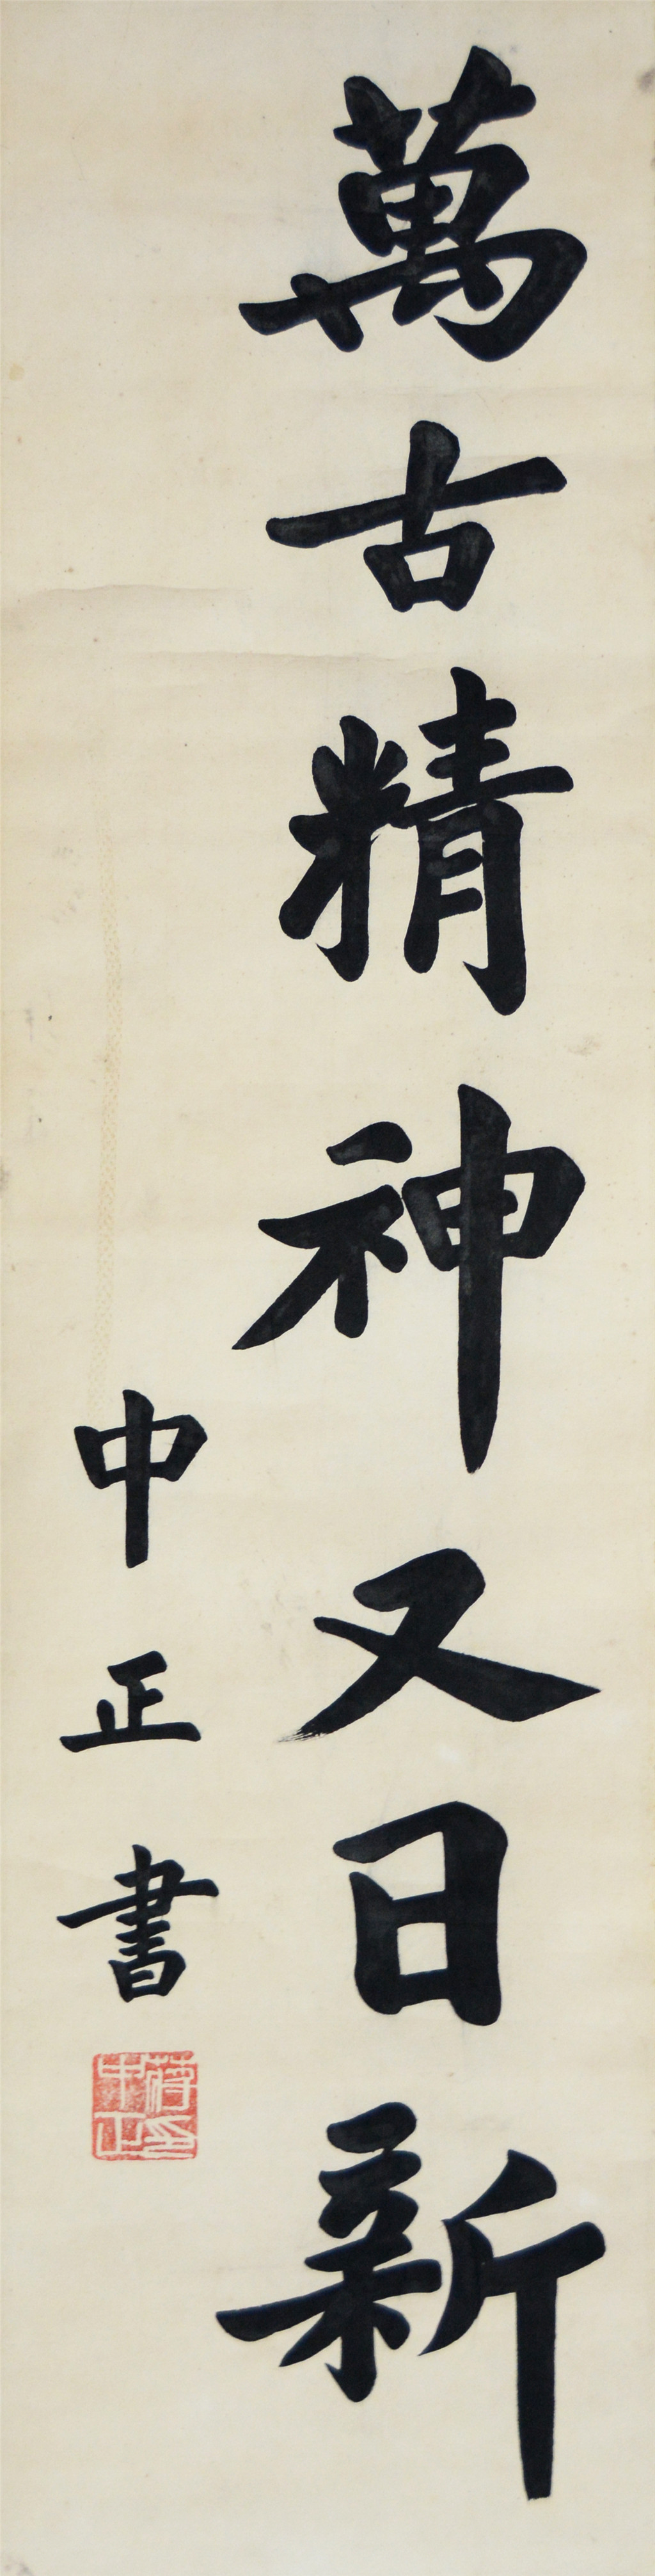 萬古精神又日新
中正書
蔣中正印